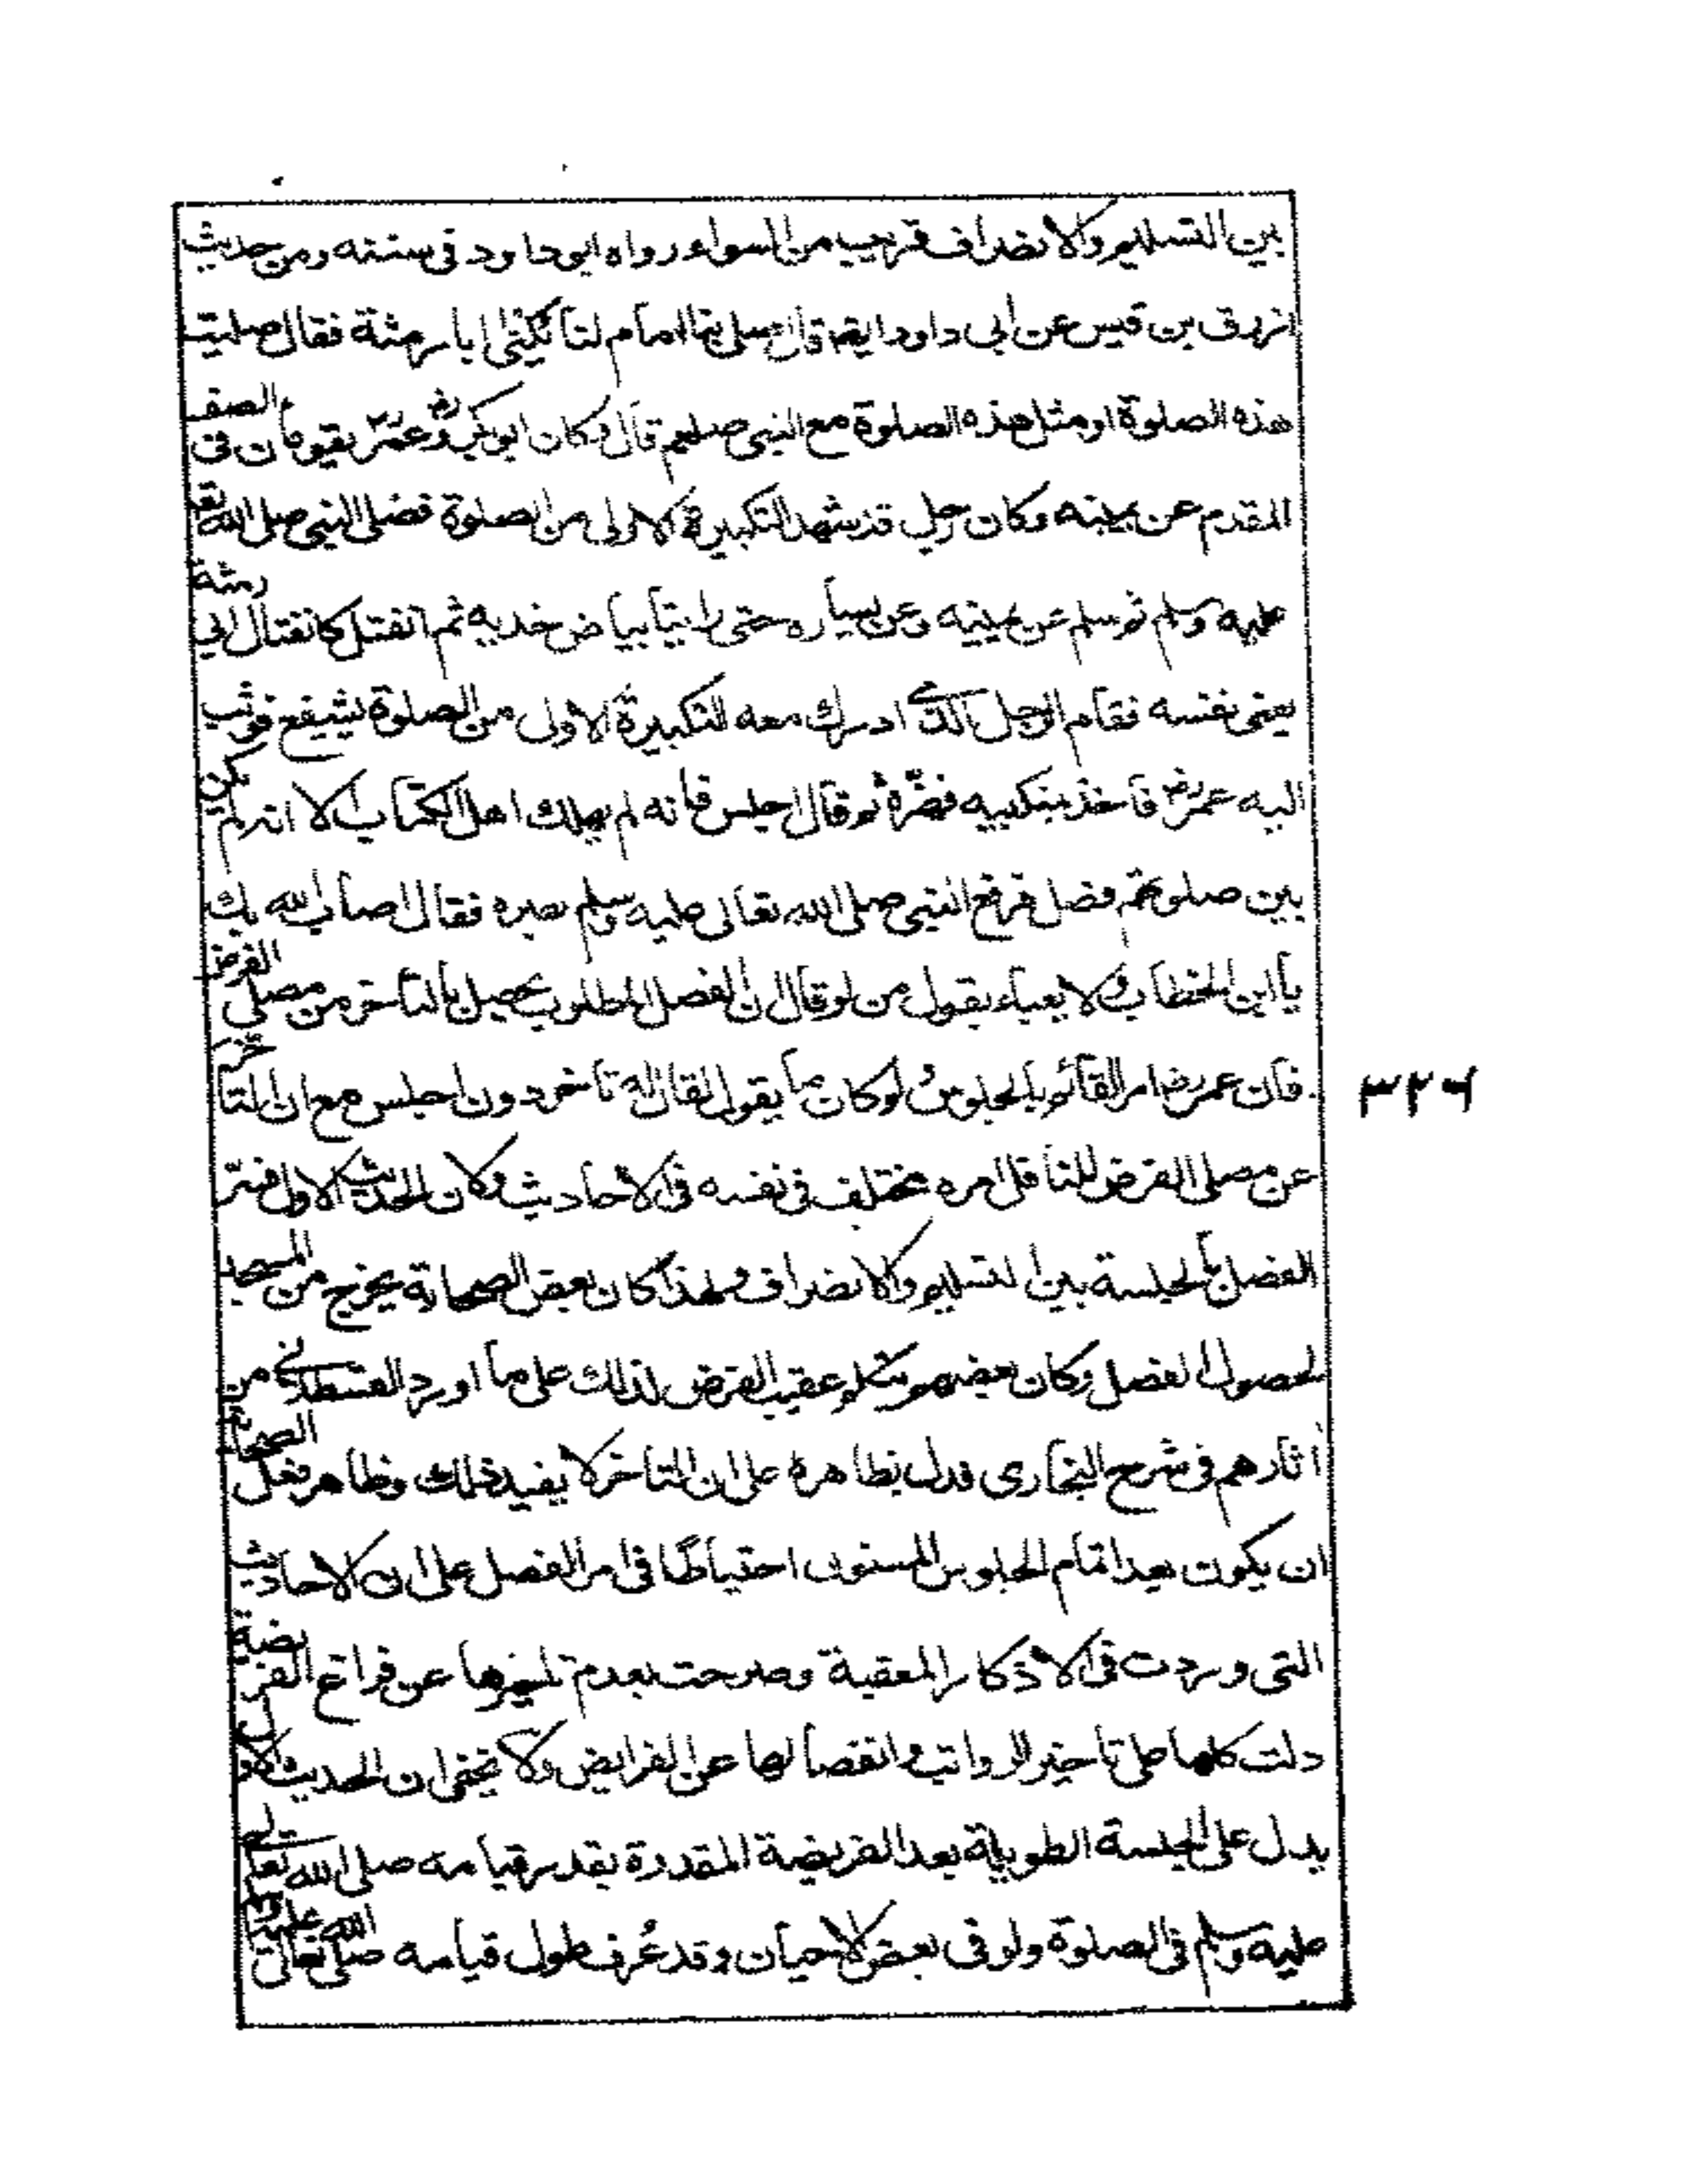 بين التسليم والانصراف قريب من السواء رواه ابو داود في سننه ومن حديث
ازرق بن قيس عن ابي داود ايضا قال صلى بنا امام لنا يكنى ابا رمثة فقال صليت
هذه الصلوة او مثل هذه الصلوة مع النبي صلعم قال وكان ابو بكر رض وعمر رض يقومان في الصف
المقدم عن يمينه وكان رجل قد شهد التكبيرة الاولى من الصلوة فصلى النبي صلى الله تعا
عليه وسلم ثم سلم عن يمينه وعن يساره حتى راينا بياض خديه ثم انفتل كانفتال ابي رمثة
يعني نفسه فقام الرجل الذي ادرك معه التكبيرة الاولى من الصلوة يشيفع فوثب
اليه عمر رض فاخذ بمنكبيه فهزه ثم قال اجلس فانه لم يهلك اهل الكتاب الا انه لم يكن
بين صلوتهم فصل فرفع النبي صلى الله تعالى عليه وسلم بصره فقال اصاب الله بك
يا ابن الخطاب ولا يعباء بقول من لو قال ان الفصل المطلوب يحصل بالتأخر من مصلى الفرض
فان عمر رض امر القائم بالجلوس ولو كان ما يقول لقال له تاخر دون اجلس مع ان المتاخر
عن مصلى الفرض للتنافل امره مختلف في نفسه في الاحاديث ولان الحديث الاول فسر
الفصل بالجلسة بين التسليم والانصراف ولهذا كان بعض الصحابة يخرج من المسجد
لحصول الفصل وكان بعضهم يتكلم عقيب الفرض لذلك على ما اورد القسطلاني من
اثارهم في شرح البخاري فدل بظاهره على ان التاخر لا يفيد ذلك وظاهر فعل الصحابة
ان يكون بعد اتمام الجلوس المسنون احتياطا في امر الفصل على ان الاحاديث
التي وردت في الاذكار المعقبة وصرحت بعدم تاخيرها عن فراغ الفريضة
دلت كلها على تاخير الرواتب وانفصالها عن الفرايض ولا يخفى ان الحديث الاول
يدل على الجلسة الطويلة بعد الفريضة المقدرة بقدر قيامه صلى الله تعالى
عليه وسلم في الصلوة ولو في بعض الاحيان وقد عرف طول قيامه صلى الله تعالى عليه وسلم
٣٢٦